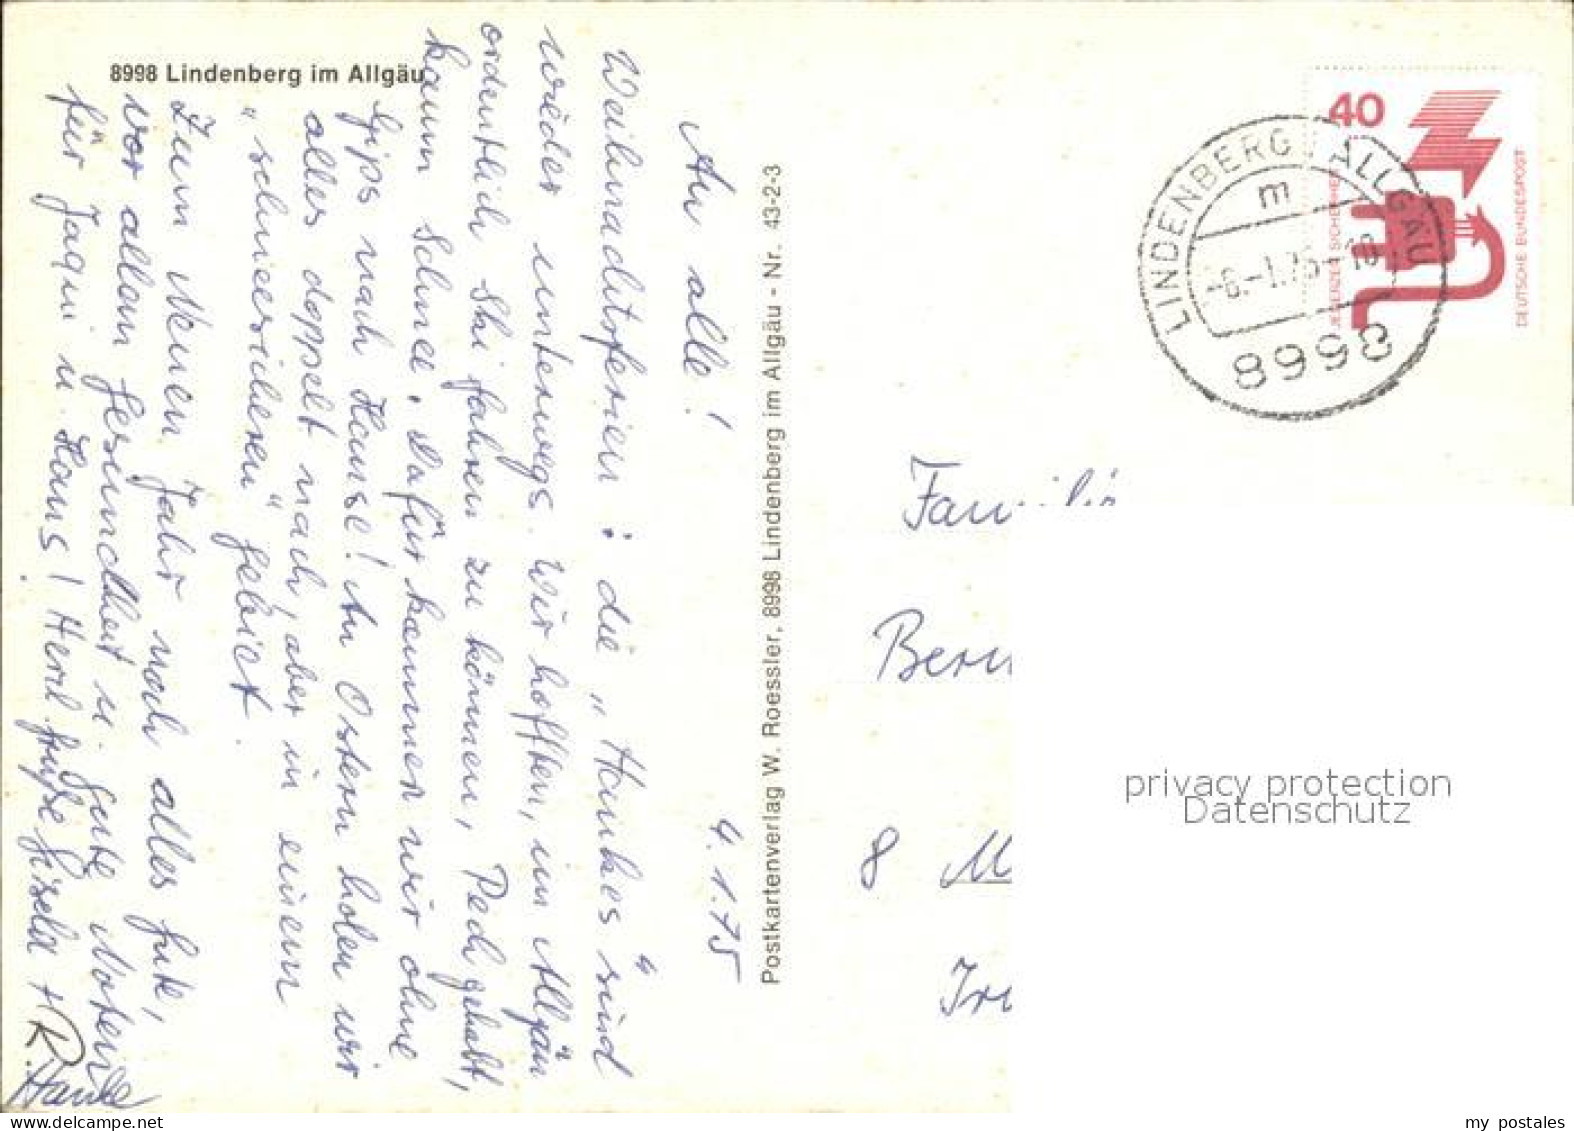 8998 Lindenberg im Allgäu
4.1.75
An alle!
Weihnachtsferien: die „Hankes" sind
wieder unterwegs. Wir hofften, im Allgäu
ordentlich Ski fahren zu können, Pech gehabt,
kaum Schnee. Dafür kommen wir ohne
Gips nach Hause! An Ostern holen wir
alles doppelt nach, aber in einem
„schneesicheren" Gebiet.
Zum Neuen Jahr noch alles Gute,
vor allem Gesundheit u. gute Noten
für Jaqui u. Hans! Herzl. Grüße Gisela +
R. Hanke
Postkartenverlag W. Roessler, 8998 Lindenberg im Allgäu - Nr. 43-2-3
40
JEDERZEIT SICHERHEIT
DEUTSCHE BUNDESPOST
LINDENBERG, ALLGÄU
m
-6.-1.75-10
8998
Familie
8 M
privacy protection
Datenschutz
my postales